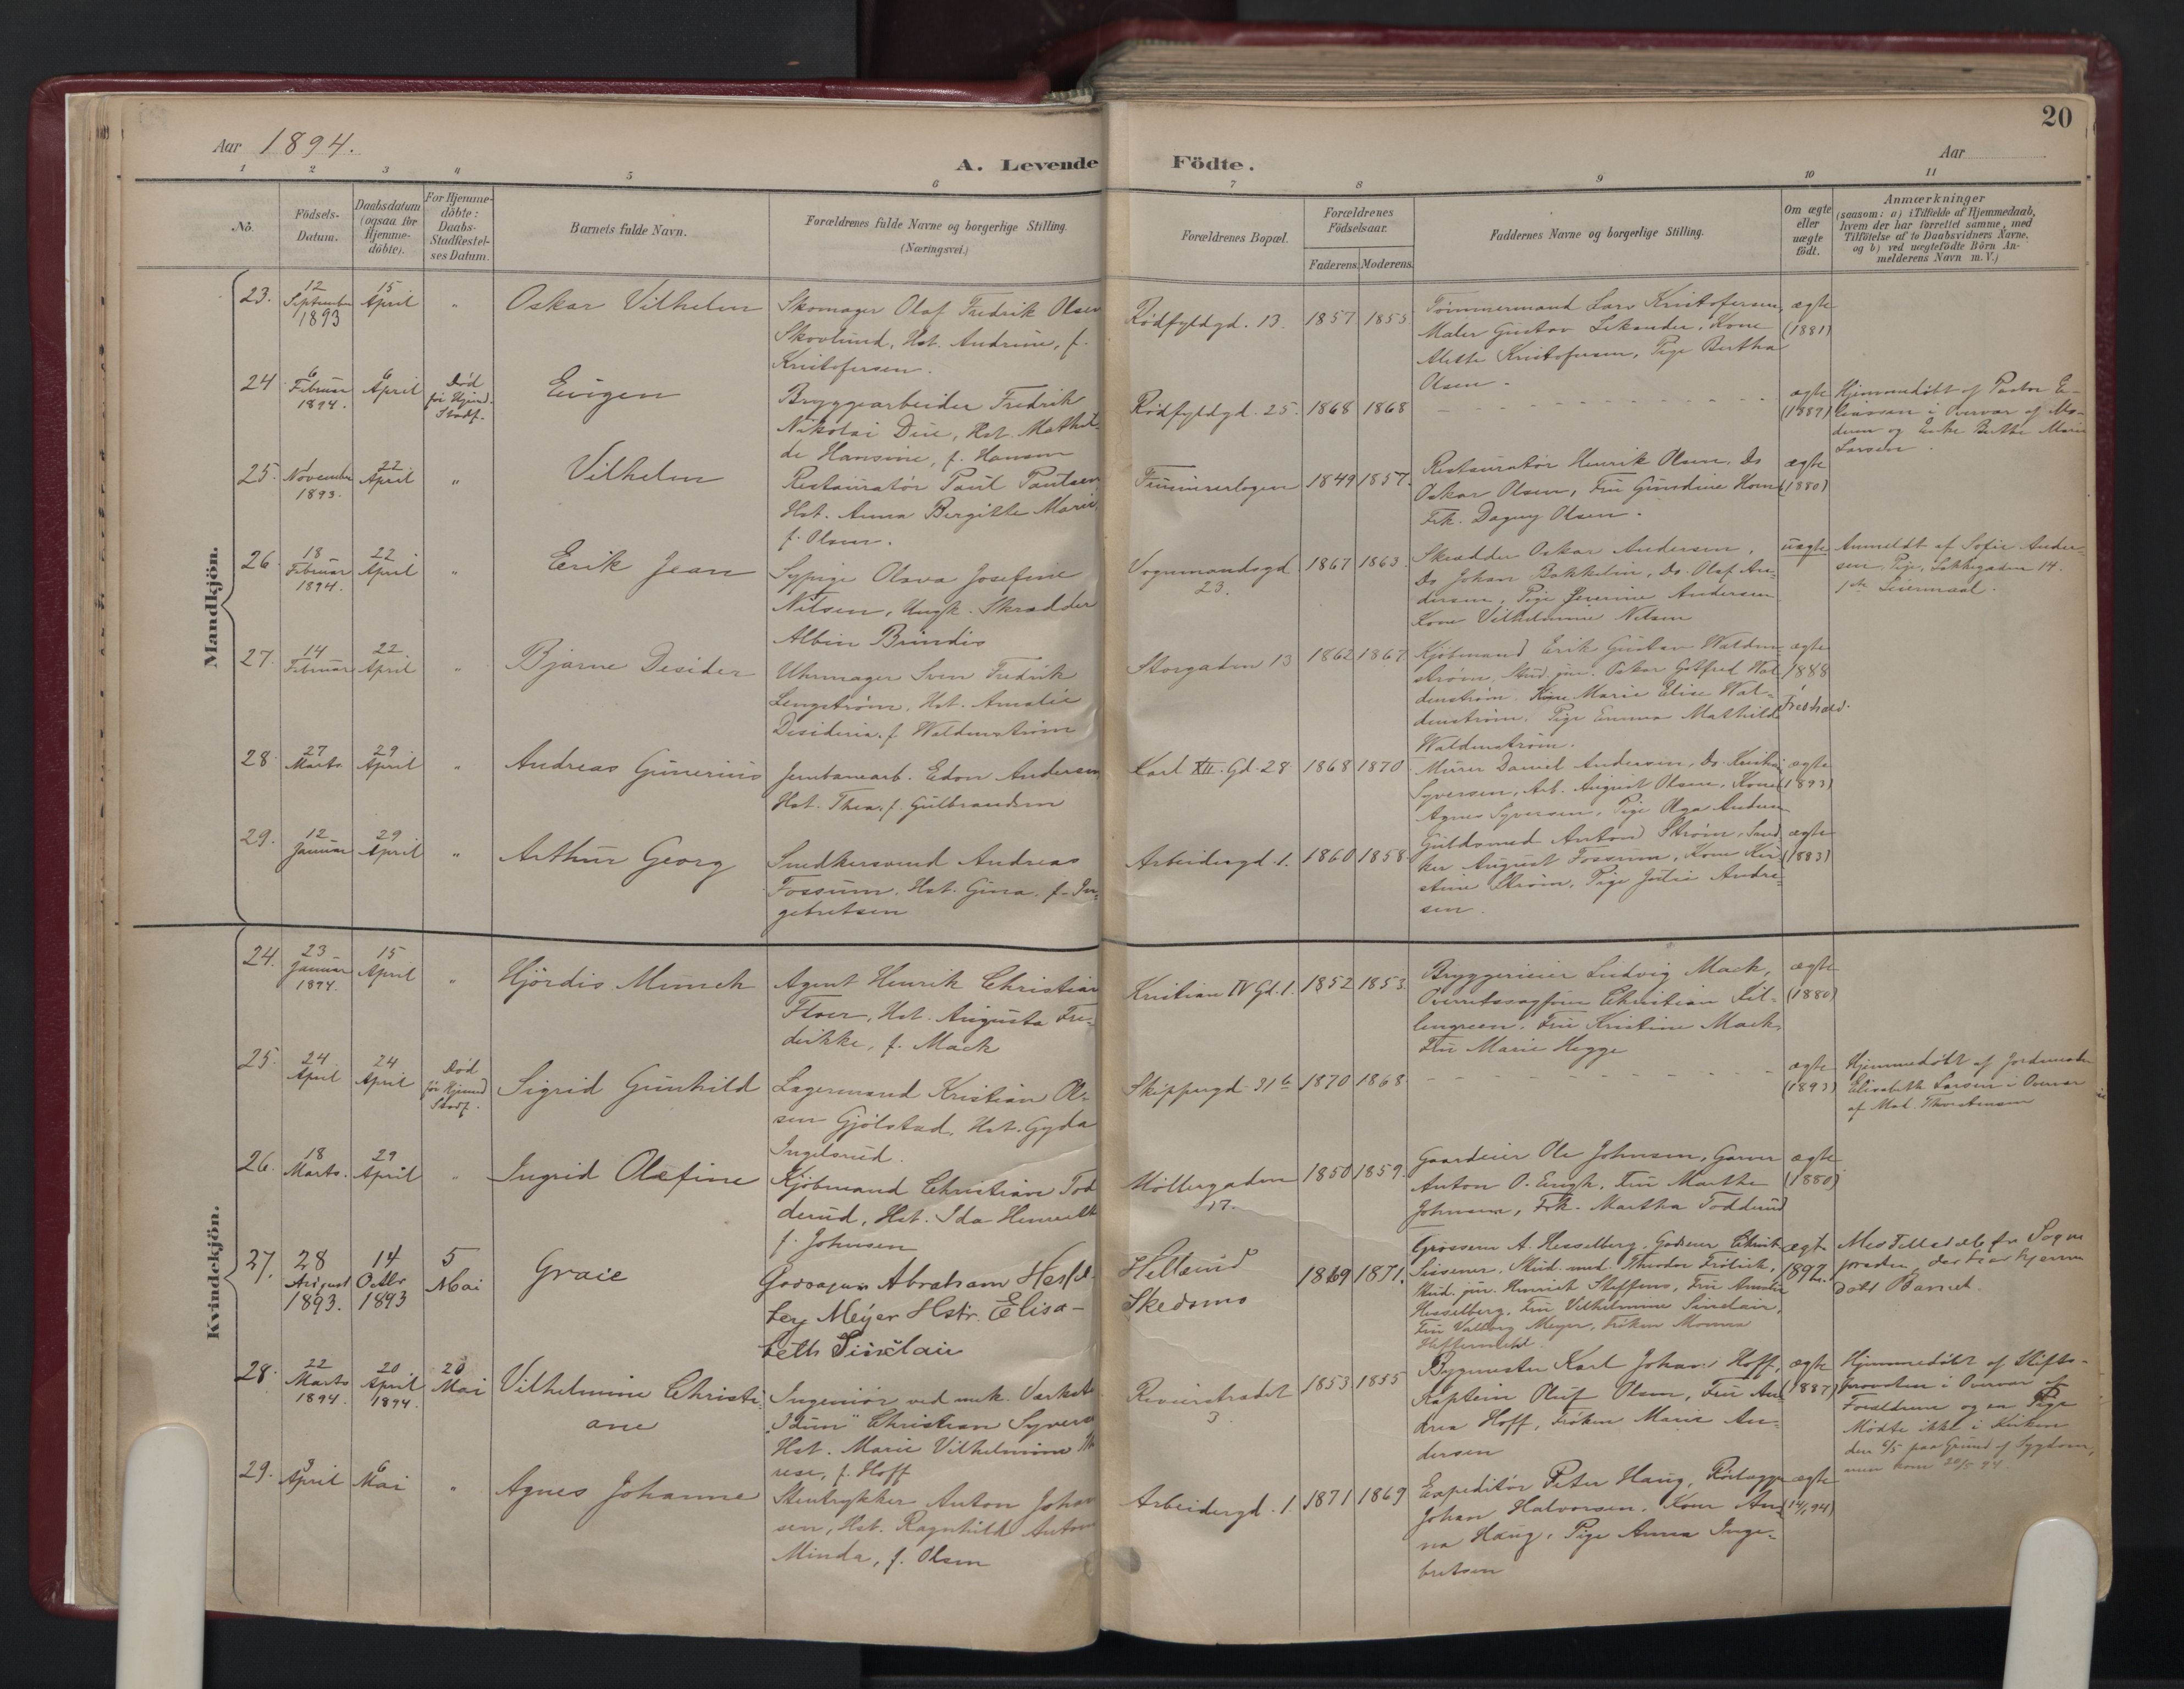 20
Aar 1894.
Aar
A. Levende Födte.
1 2 3 4 5 6 7 8 9 10 11
No.
Födsels-Datum.
Daabsdatum (ogsaa for Hjemme-döbte).
For Hjemme-döbte: Daabs-Stadfæstel-ses Datum.
Barnets fulde Navn.
Forældrenes fulde Navne og borgerlige Stilling.
(Næringsvei.)
Forældrenes Bopæl.
Forældrenes Födselsaar.
Faderens. Moderens.
Faddernes Navne og borgerlige Stilling.
Om ægte eller uægte födt.
Anmærkninger
(saasom: a) i Tilfælde af Hjemmedaab,
hvem der har forrettet samme, med
Tilföielse af to Daabsvidners Navne,
og b) ved uægtefödte Börn An-
melderens Navn m. V.)
Mandkjön.
23. 12 September 1893 15 April " Oskar Vilhelm
Skomager Olaf Fredrik Olsen
Skovlund, Hst. Andrine, f.
Kristofersen.
Rödfyldgd. 13. 1857 1855
Tömmermand Lars Kristofersen,
Maler Gustav Lekander, Kone
Kristofersen, Pige Bertha
Olsen.
ægte (1881)
24 6 Februar 1894. 6 April Död før Hjem. Stadf. Eugen
Bryggearbeider Fredrik
Nikolai Due, Hst. Mathil-
de Hansine, f. Hansen
Rödfyldgd. 25. 1868 1868
ægte (1887)
Hjemmedöbt af Pastor
i Overvær af Mo-
deren og Enke Berthe Marie
Larsen.
25. 1 November 1893. 22 April " Vilhelm
Restauratör Paul Paulsen
Hst. Anna Bergitte Marie,
f. Olsen.
1849 1857.
Restauratör Henrik Olsen, Do
Oskar Olsen, Fru Gundine
Frk. Dagny Olsen.
ægte (1880)
26 18 Februar 1894. 22 April " Erik Jean
Sypige Olava Josefine
Nilsen, Ungk. Skrædder
Albin Brundis
Vognmandsgd 23. 1867 1863.
Skrædder Oskar Andersen,
Do Johan Bakkelin, Do. Olaf An-
dersen, Pige Severine Andersen
Kone Vilhelmine Nilsen
uægte
Anmeldt af Sofie Ander-
sen, Pige, Lakkegaden 14.
1ste Leiermaal.
27. 14 Februar 22. April " Bjarne Desider
Uhrmager Sven Fredrik
Lengström, Hst. Amalie
Desideria, f. Waldenström
Storgaden 13 1862 1867
Kjöbmand Erik Gustav Walden-
ström, Stud. jur. Oskar Gotfred Wal-
denström. Kone Marie Elise Wal-
denström. Pige Emma Mathilde
Waldenström.
ægte 1888 Fredhald.
28. 27 Marts 29 April " Andreas Gunerius
Jernbanearb. Edon Andersen
Hst. Thea, f. Gulbrandsen
Karl XII. Gd. 28 1868 1870
Murer Daniel Andersen, Do. Kristian
Syversen, Arb. August Olsen, Kone
Agnes Syversen, Pige Olga Andersen
ægte (1893)
29. 12 Januar 29 April " Arthur Georg
Snedkersvend Andreas
Fossum, Hst. Gina, f. In-
gebretsen
Arbeidergd. 1. 1860 1858.
Guldsmed Anton Ström, Sned-
ker August Fossum, Kone Kir-
stine Ström, Pige Andre-
sen.
ægte (1883)
Kvindekjön.
24. 23 Januar 1894. 15 April " Hjördis Munch
Agent Henrik Christian
Floer, Hst. Augusta Fre-
derikke, f. Mack
Kristian IV Gd. 1. 1852 1853
Bryggerieier Ludvig Mack,
Overretssagförer Christian Kil-
lengreen, Fru Kristine Mack,
Fru Marie Hegge
ægte (1880)
25. 24 April 24 April Död før Hjemd Stadf. Sigrid Gunhild
Lagermand Kristian Ol-
sen Gjölstad, Hst. Gyda
Ingelsrud.
Skippergd. 31b 1870 1868
ægte (1893)
Hjemmedöbt af Jordmoder
Elisabeth Larsen i Overvær
af Mal. Thorstensen
26. 18 Marts. 29 April " Ingrid Olefine
Kjöbmand Christian Tod-
derud, Hst. Ida Henriette
f. Johnsen
Möllergaden 17. 1850 1859.
Gaardeier Ole Johnsen, Garver
Anton O. Engh, Fru Marthe
Johnsen, Frk. Martha Todderud
ægte (1880)
27. 28 August 1893. 14 Octbr 1893 5 Mai Graie
Godseier Abraham Hessel-
berg Meyer Hstr. Elisa-
beth Sinclair
Hellerud Skedsmo 1869 1871.
Grosserer A. Hesselberg, Godseier Christ.
Sissener, Stud. med. Theodor Frölich,
Stud. jur. Henrich Steffens, Fru Amalie
Hesselberg, Fru Vilhelmine Sinclair,
Fru Valborg Meyer, Fröken Monna
ægte 1892
Med Tilladelse fra Sogne
presten, der har hjemme
döbt Barnet.
28. 22 Marts 1894. 20 April 1894. 20 Mai Vilhelmine Christi-
ane
Ingeniör ved mek. Værksted
"Idun" Christian Syvers
Hst. Marie Vilhelmine
f. Hoff
Revierstrædet 3. 1853 1855
Bygmester Karl Johan Hoff,
Kaptein Oluf Olsen, Fru An-
drea Hoff, Fröken Marie An-
dersen
ægte (1887)
Hjemmedöbt af Stifts-
provsten i Overvær af
Forældrene og en Pige
Mödte ikke i Kirken
den 6/5 paa Grund af Sygdom,
men kom 20/5 94.
29. 9 April 6 Mai " Agnes Johanne
Stentrykker Anton Johan-
sen, Hst. Ragnhild Anton
Minda, f. Olsen
Arbeidergd. 1. 1871 1869
Expeditör Peter Haug,
Johan Halvorsen, Kone An-
na Haug, Pige Anna Inge-
bretsen
ægte (14/1 94)